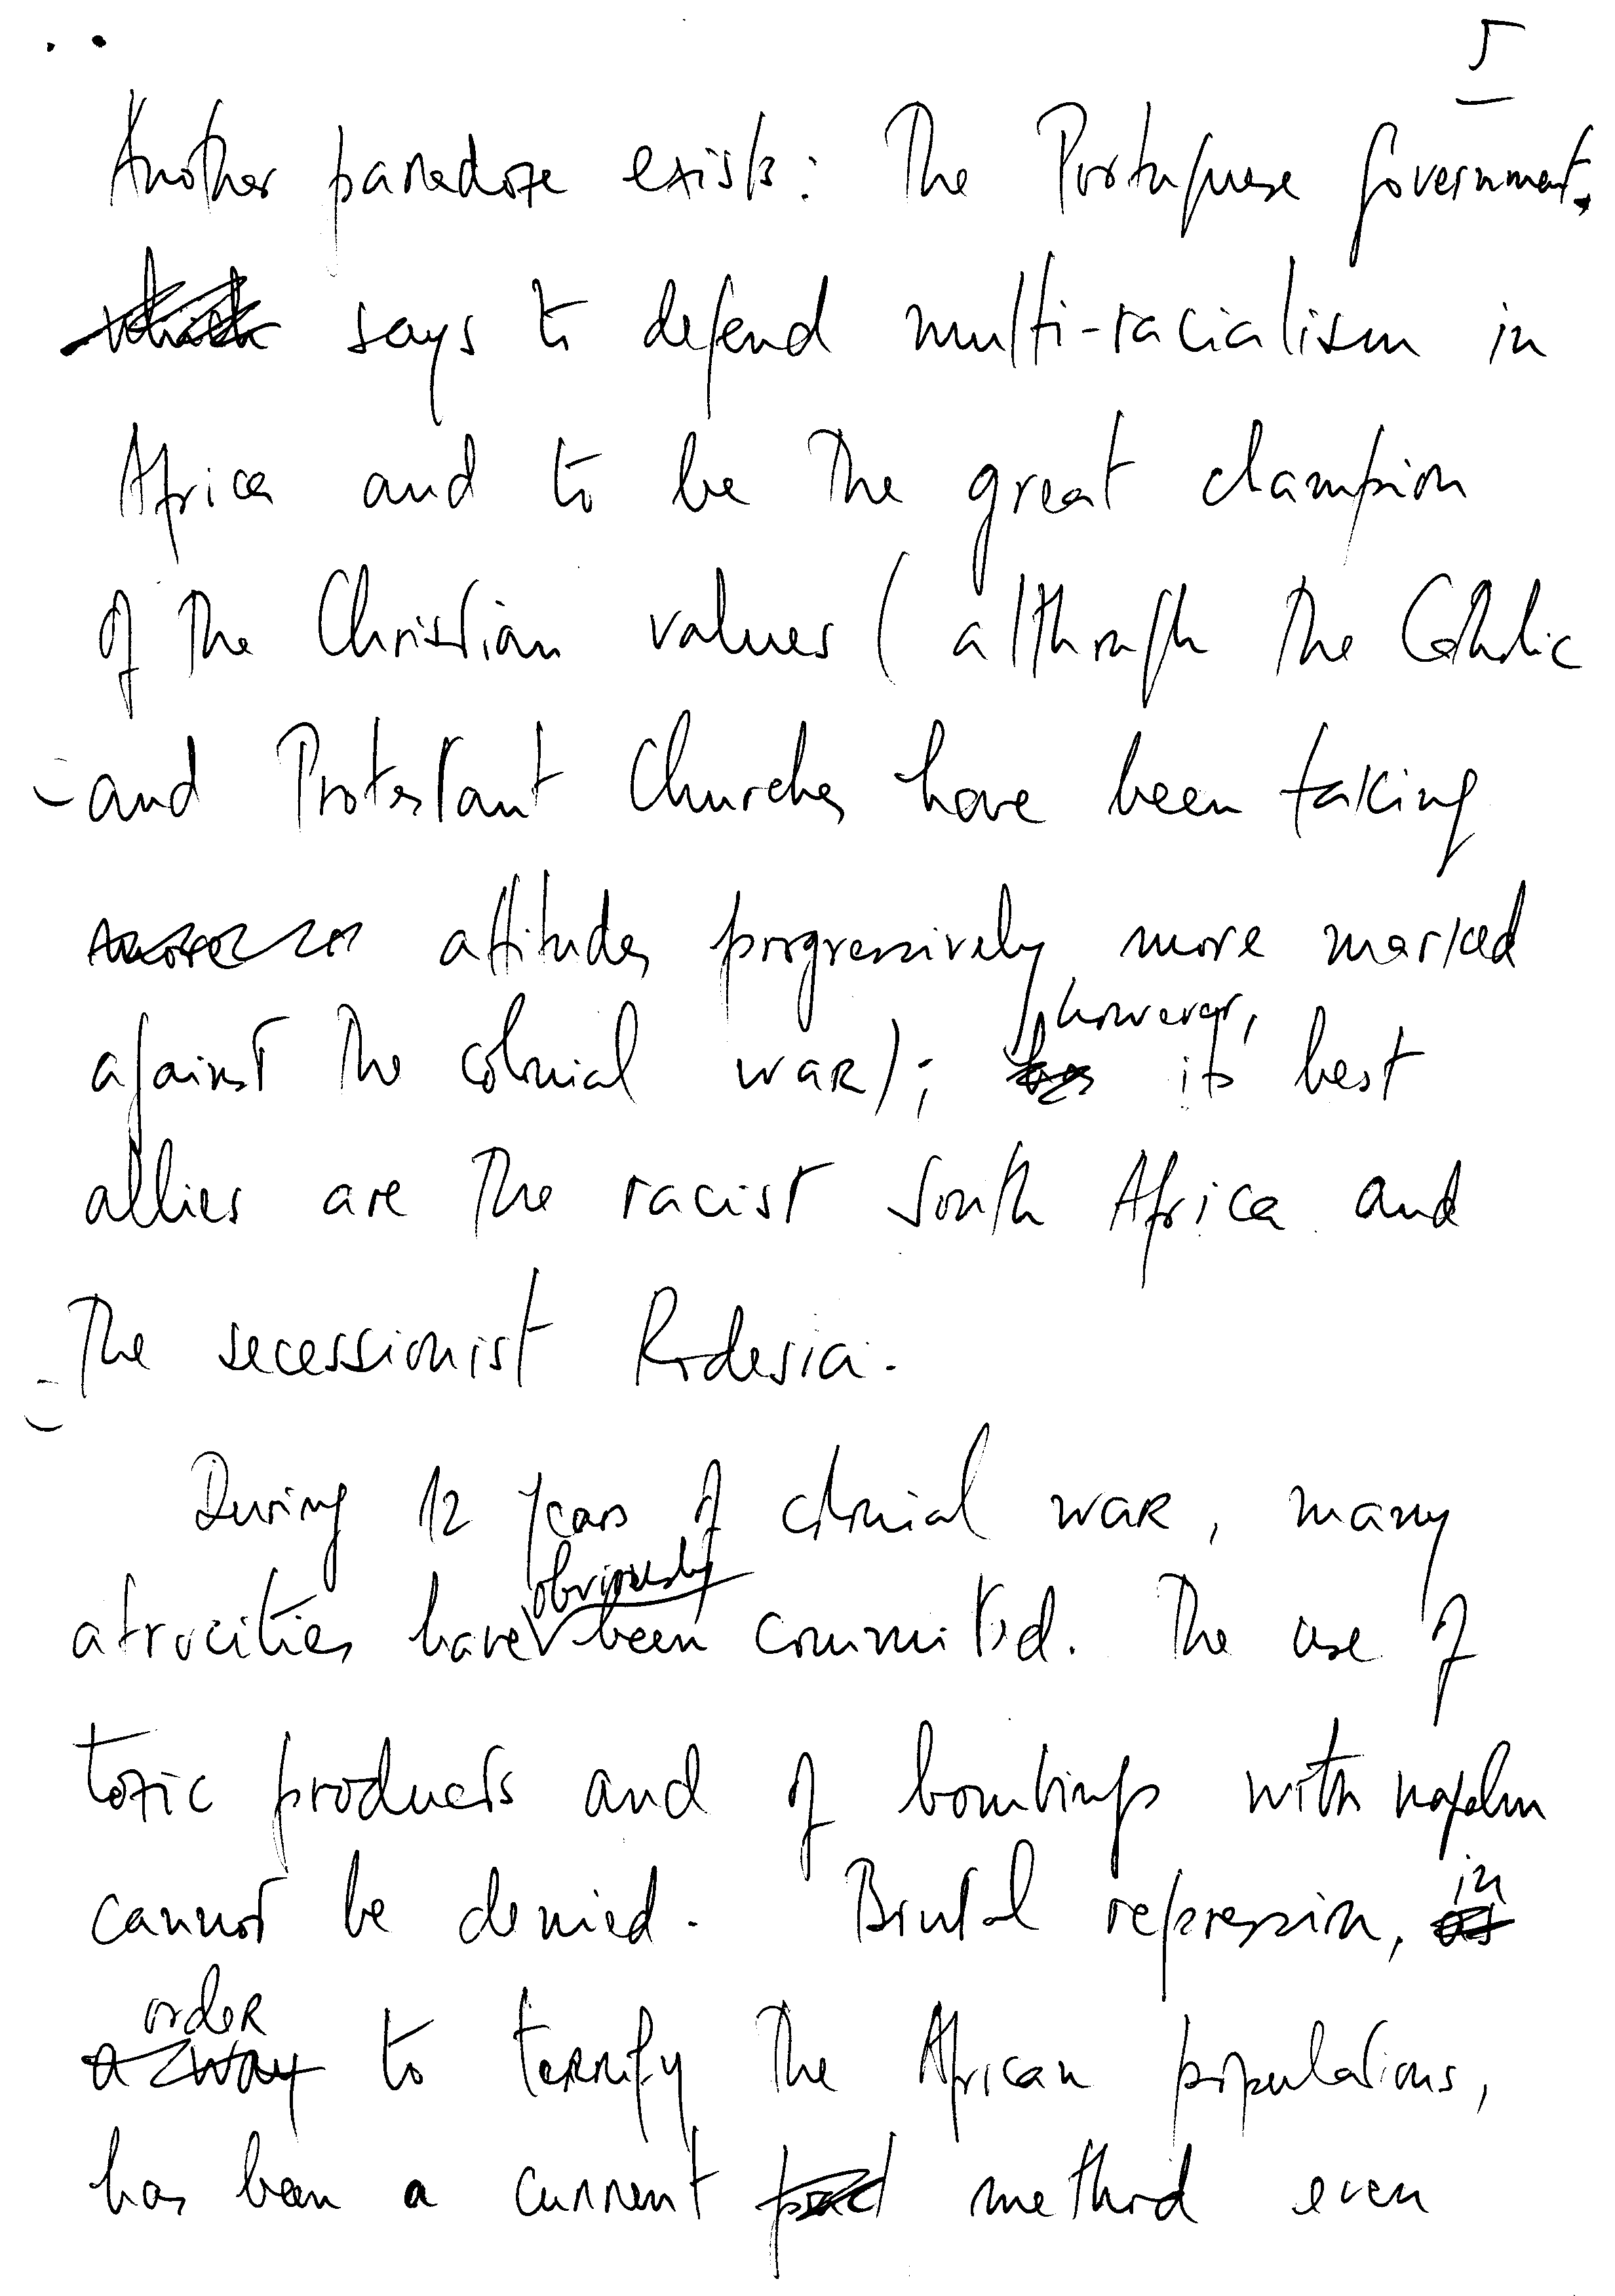 5
Another paradoxe exists: The Portuguese Government
which says to defend multi-racialism in
Africa and to be the great champion
of the Christian values (although the Catholic
and Protestant Churches have been taking
attitudes progressively more marked
however,
against the colonial war); has its best
allies are the racist South Africa and
the secessionist Rodesia.
During 12 years of colonial war, many
obviously
atrocities have been committed. The use of
toxic products and of bombings with napalm
in
cannot be denied. Brutal repression, as
order
a way to terrify the African populations,
has been a current method even